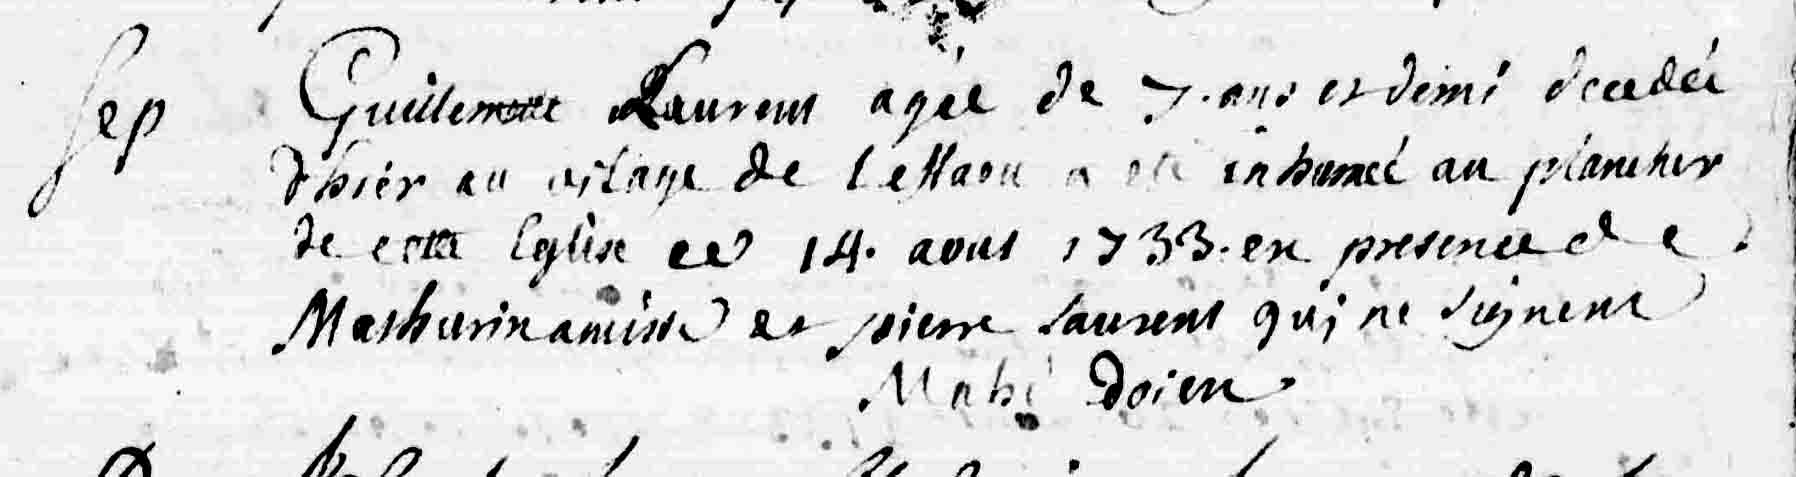 Sep
Guillemette Laurent agée de 7. ans et demi decedée
d'hiér au vilage de a eté inhumée au plancher
de cette Eglise ce 14. aout 1733. en presence de
Mathurin et pierre Laurent qui ne signent
Mahé Doien